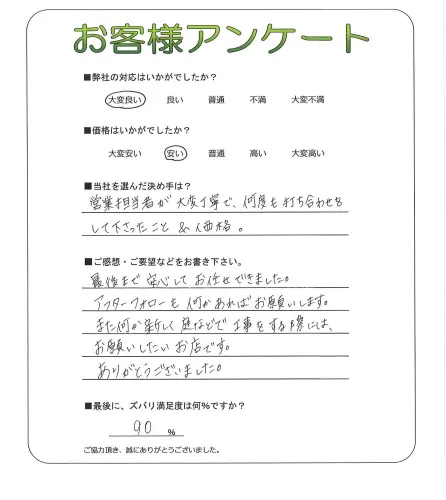 お客様アンケート
■弊社の対応はいかがでしたか？
大変良い　良い　普通　不満　大変不満
■価格はいかがでしたか？
大変安い　安い　普通　高い　大変高い
■当社を選んだ決め手は？
営業担当者が大変丁寧で、何度も打ち合わせを
して下さったこと & 価格。
■ご感想・ご要望などをお書き下さい。
最後まで安心してお任せできました。
アフターフォローも何かあればお願いします。
また何か新しく庭などで工事をする際には、
お願いしたいお店です。
ありがとうございました。
■最後に、ズバリ満足度は何%ですか？
90 %
ご協力頂き、誠にありがとうございました。